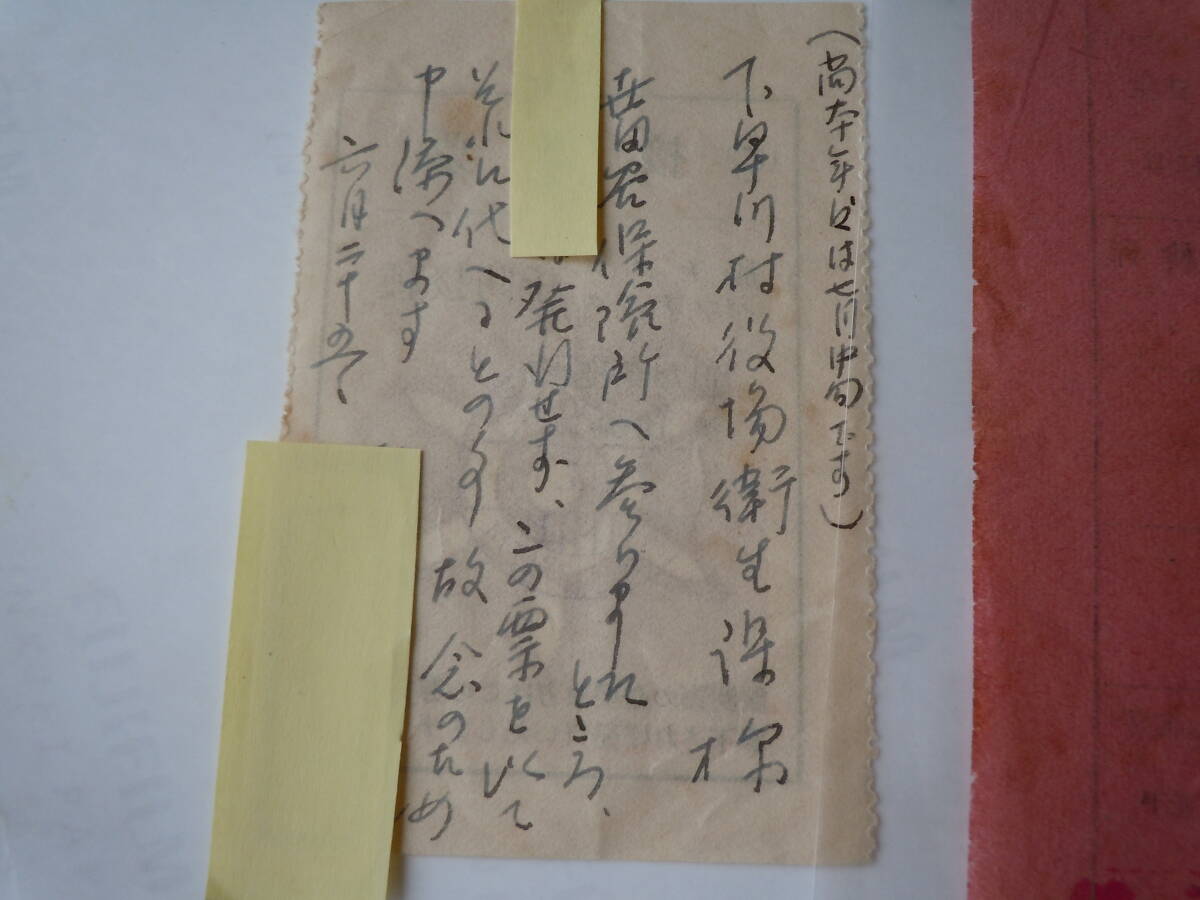 (尚本年度は七月中旬です)
下早川村役場衛生課
世田谷保険所へ参りましたところ、
発行せず、この票を以て
それに代へるとの事 故 念のため
申添へます
六月二十五日